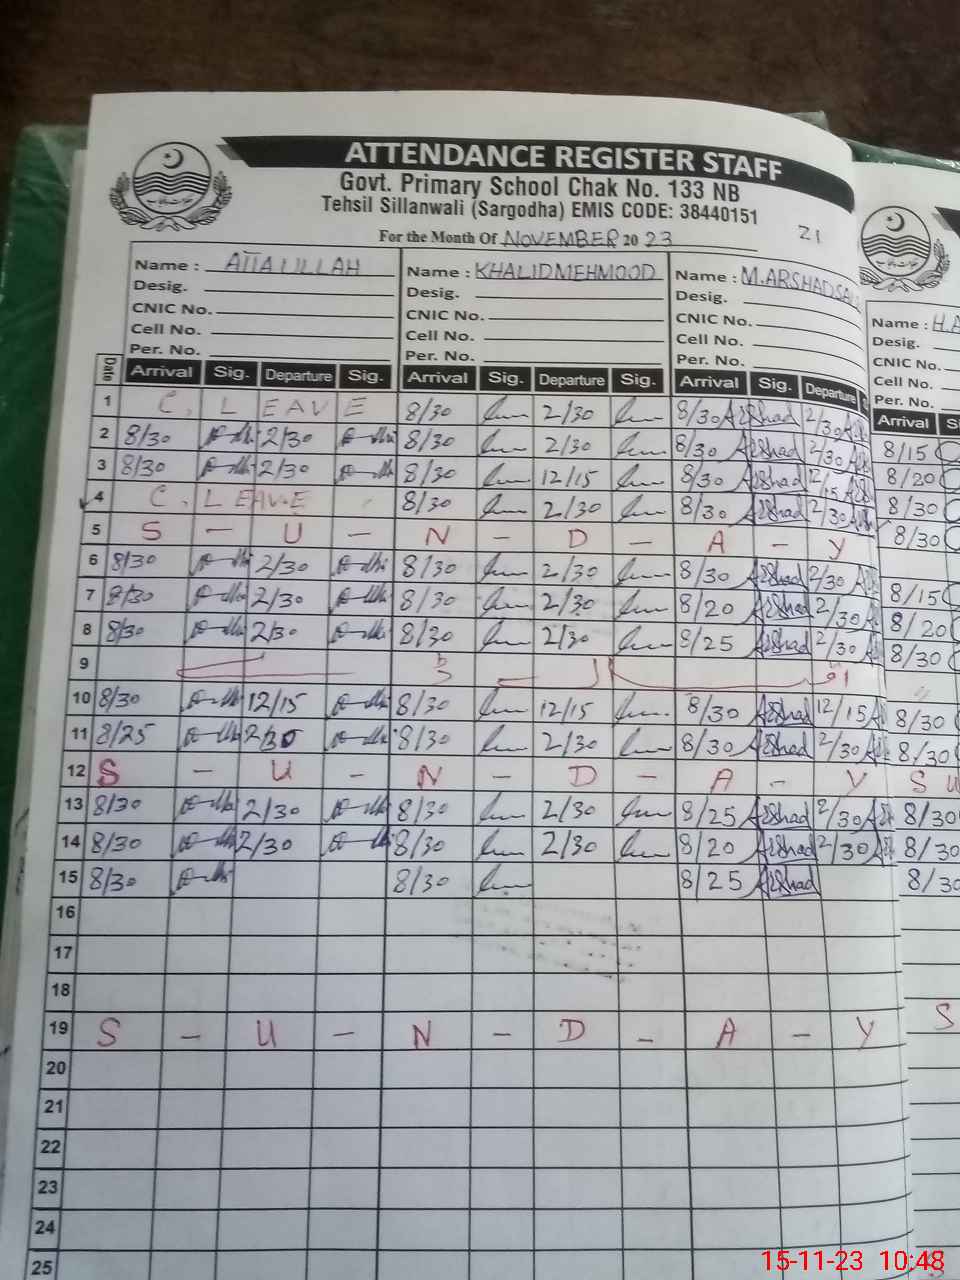 ATTENDANCE REGISTER STAFF
Govt. Primary School Chak No. 133 NB
Tehsil Sillanwali (Sargodha) EMIS CODE: 38440151
For the Month Of NOVEMBER 2023 21
Name : ATTAULLAH Name : KHALID MEHMOOD Name : M. ARSHAD Name : H.A
Desig. Desig. Desig. Desig.
CNIC No. CNIC No. CNIC No. CNIC No.
Cell No. Cell No. Cell No. Cell No.
Per. No. Per. No. Per. No. Per. No.
Date Arrival Sig. Departure Sig. Arrival Sig. Departure Sig. Arrival Sig. Departure Arrival
1 C. LEAVE 8/30 2/30 8/30 Arshad 2/30
2 8/30 2/30 8/30 2/30 8/30 Arshad 2/30 8/15
3 8/30 2/30 8/30 12/15 8/30 Arshad 12/15 8/20
4 C. LEAVE 8/30 2/30 8/30 Arshad 2/30 8/30
5 S - U - N - D - A - Y 8/30
6 8/30 2/30 8/30 2/30 8/30 Arshad 2/30
7 8/30 2/30 8/30 2/30 8/20 Arshad 2/30 8/15
8 8/30 2/30 8/30 2/30 8/25 Arshad 2/30 8/20
9 8/30
10 8/30 12/15 8/30 12/15 8/30 Arshad 12/15 8/30
11 8/25 2/30 8/30 2/30 8/30 Arshad 2/30 8/30
12 S - U - N - D - A - Y S U
13 8/30 2/30 8/30 2/30 8/25 Arshad 2/30 8/30
14 8/30 2/30 8/30 2/30 8/20 Arshad 2/30 8/30
15 8/30 8/30 8/25 Arshad 8/30
16
17
18
19 S - U - N - D - A - Y S
20
21
22
23
24
25
15-11-23 10:48